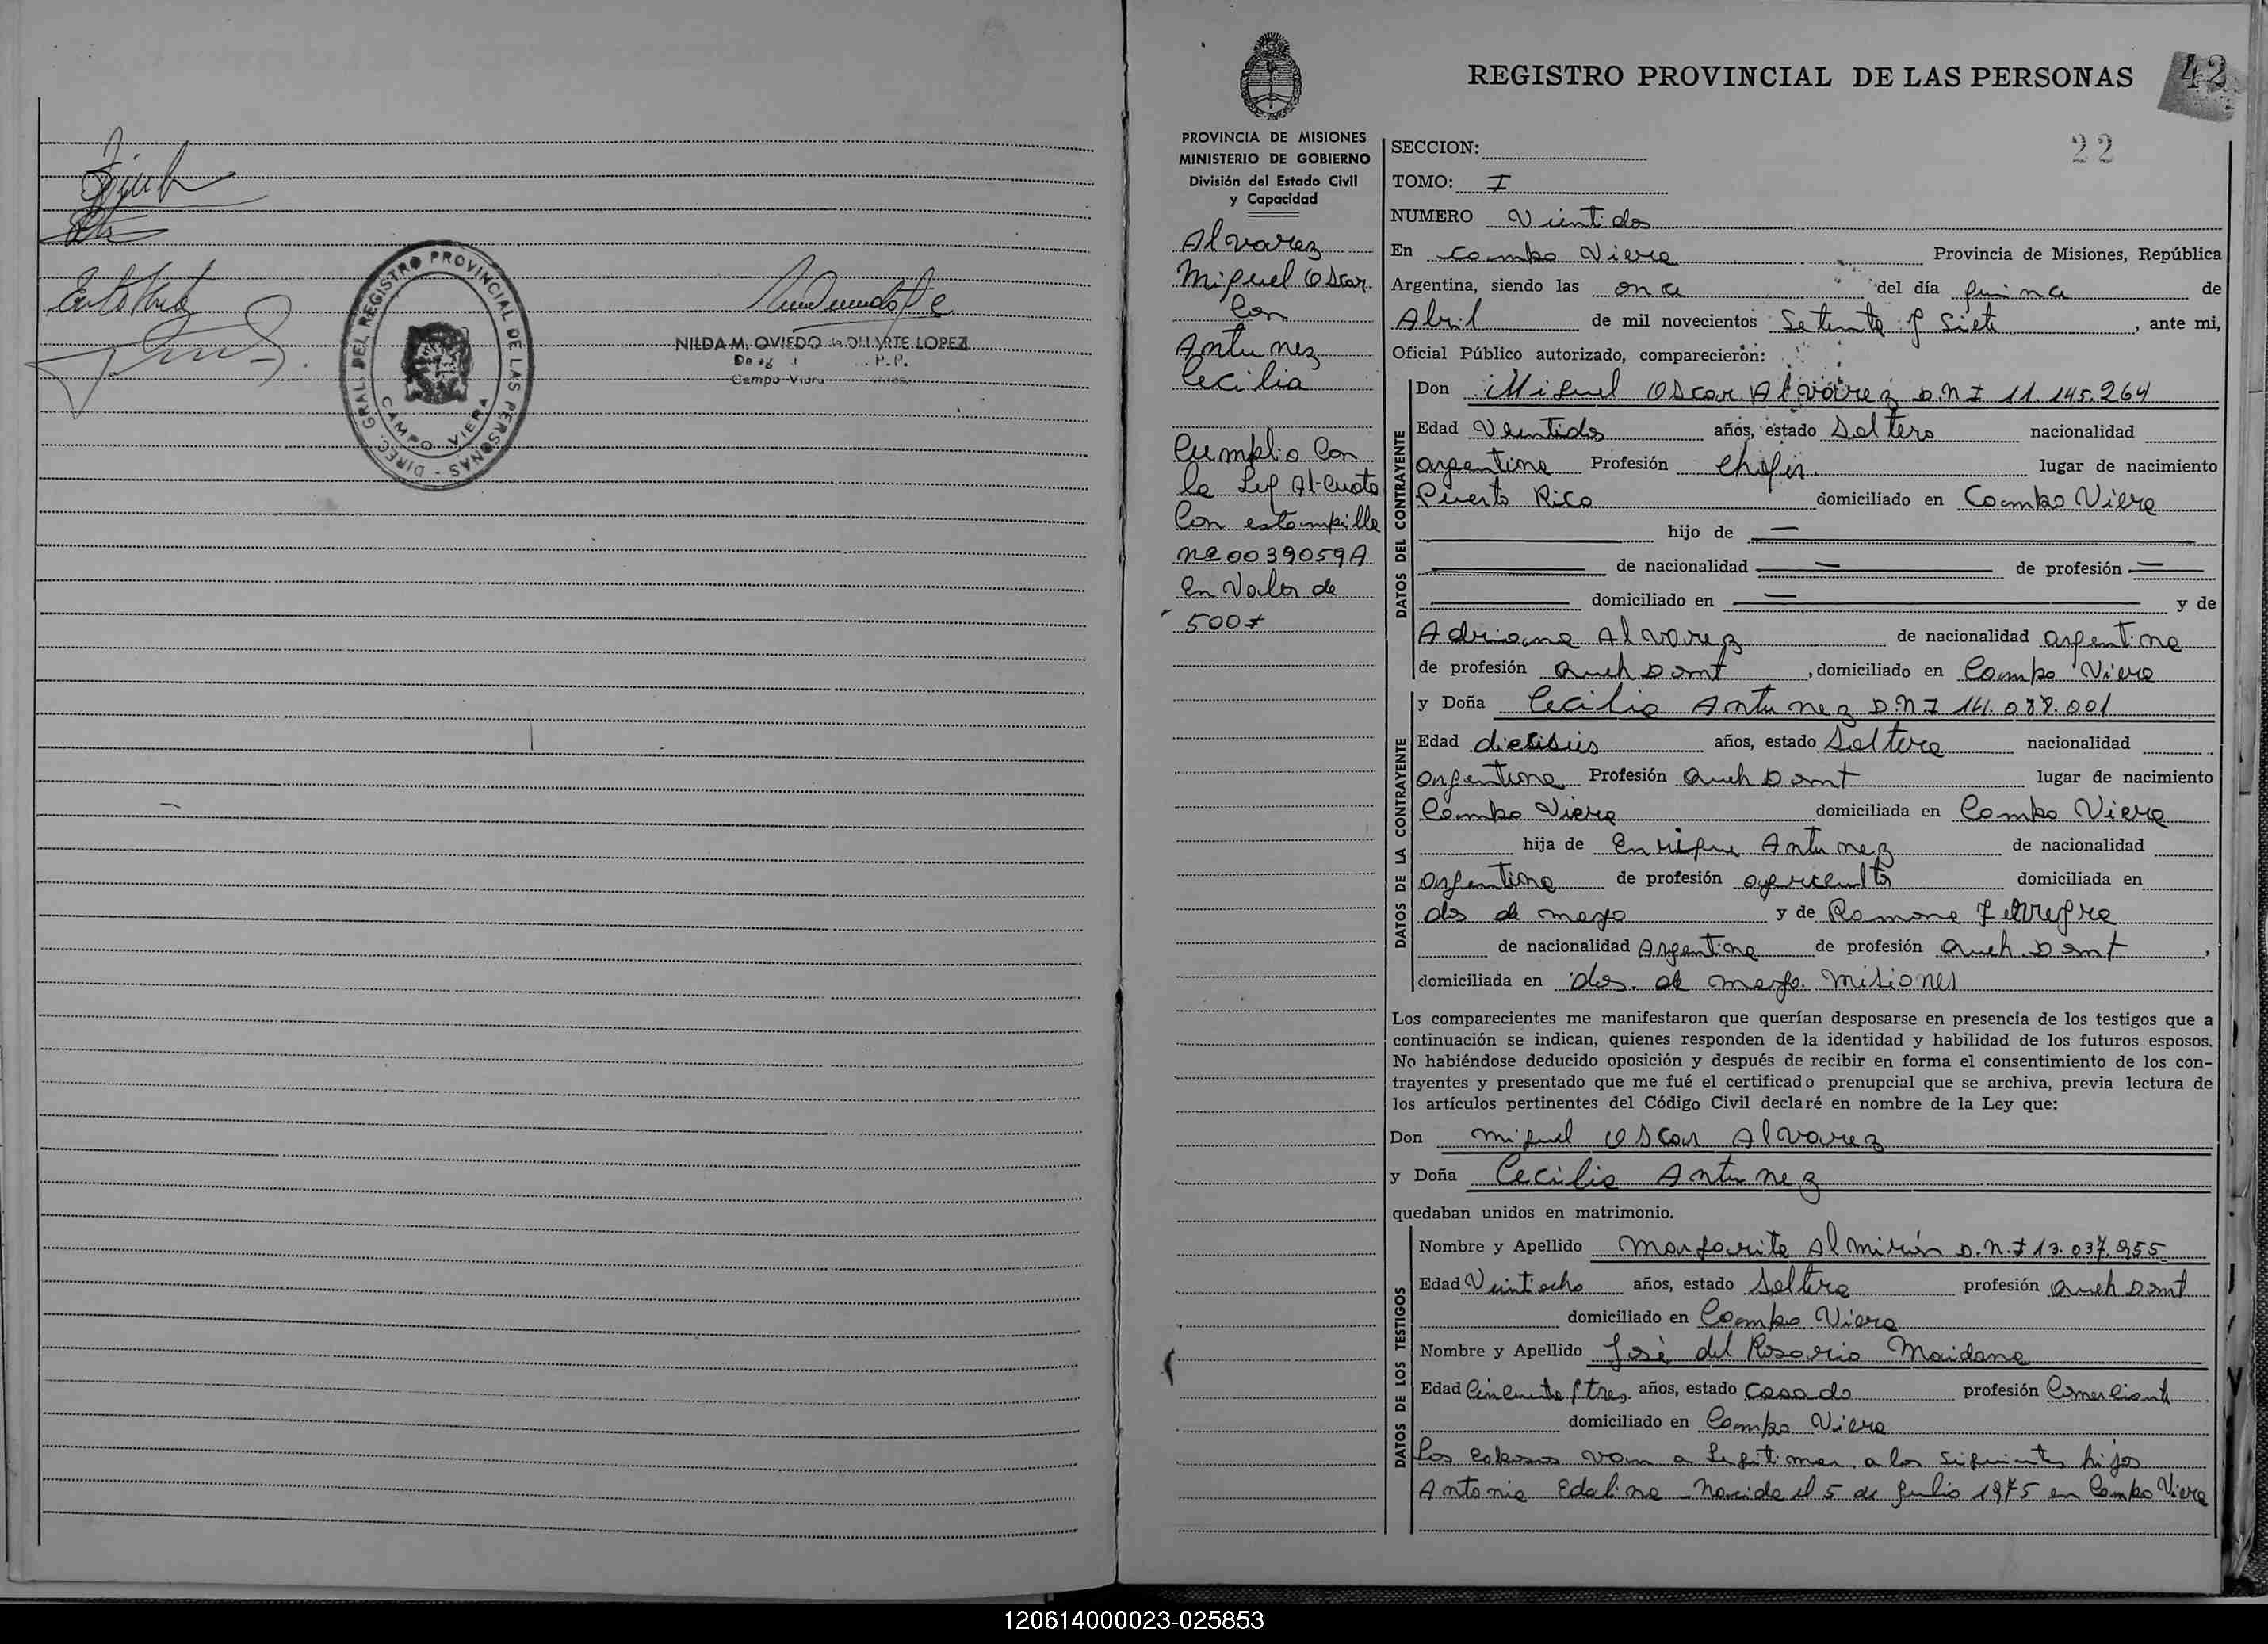 DIREC. GRAL. DEL REGISTRO PROVINCIAL DE LAS PERSONAS
CAMPO VIERA
NILDA M. OVIEDO de DUARTE LOPEZ
Campo Viera
REGISTRO PROVINCIAL DE LAS PERSONAS
42
22
PROVINCIA DE MISIONES
MINISTERIO DE GOBIERNO
División del Estado Civil
y Capacidad
Alvarez
Miguel Oscar
Con
Antunez
Cecilia
Cumplio Con
la Ley Al-Cuota
Con estampilla
Nº 0039059A
en Valor de
500$
SECCION:
TOMO: I
NUMERO Veintidos
En Campo Viera Provincia de Misiones, República
Argentina, siendo las once del día quince de
Abril de mil novecientos Setenta y Siete, ante mi,
Oficial Público autorizado, comparecieron:
DATOS DEL CONTRAYENTE
Don Miguel Oscar Alvarez D.N.I 11.145.264
Edad Veintidos años, estado Soltero nacionalidad
argentina Profesión Chofer lugar de nacimiento
Puerto Rico domiciliado en Campo Viera
hijo de —
de nacionalidad — de profesión —
domiciliado en — y de
Adriana Alvarez de nacionalidad argentina
de profesión Queh Domt, domiciliado en Campo Viera
DATOS DE LA CONTRAYENTE
y Doña Cecilia Antunez D.N.I 14.088.001
Edad dieciseis años, estado Soltera nacionalidad
argentina Profesión Queh Domt lugar de nacimiento
Campo Viera domiciliada en Campo Viera
hija de Enrique Antunez de nacionalidad
argentina de profesión agricultor domiciliada en
dos de mayo y de Ramona
de nacionalidad Argentina de profesión Queh. Domt,
domiciliada en dos de mayo. Misiones
Los comparecientes me manifestaron que querían desposarse en presencia de los testigos que a
continuación se indican, quienes responden de la identidad y habilidad de los futuros esposos.
No habiéndose deducido oposición y después de recibir en forma el consentimiento de los con-
trayentes y presentado que me fué el certificado prenupcial que se archiva, previa lectura de
los artículos pertinentes del Código Civil declaré en nombre de la Ley que:
Don Miguel Oscar Alvarez
y Doña Cecilia Antunez
quedaban unidos en matrimonio.
DATOS DE LOS TESTIGOS
Nombre y Apellido Margarita Almirón D.N.I 13.037.955
Edad Veintiocho años, estado Soltera profesión Queh Domt
domiciliado en Campo Viera
Nombre y Apellido José del Rosario Maidana
Edad Cincuenta y tres años, estado Casado profesión Comerciante
domiciliado en Campo Viera
Los esposos van a Legitimar a los Siguientes hijos
Antonia Edelina - Nacida el 5 de Julio 1975 en Campo Viera
120614000023-025853